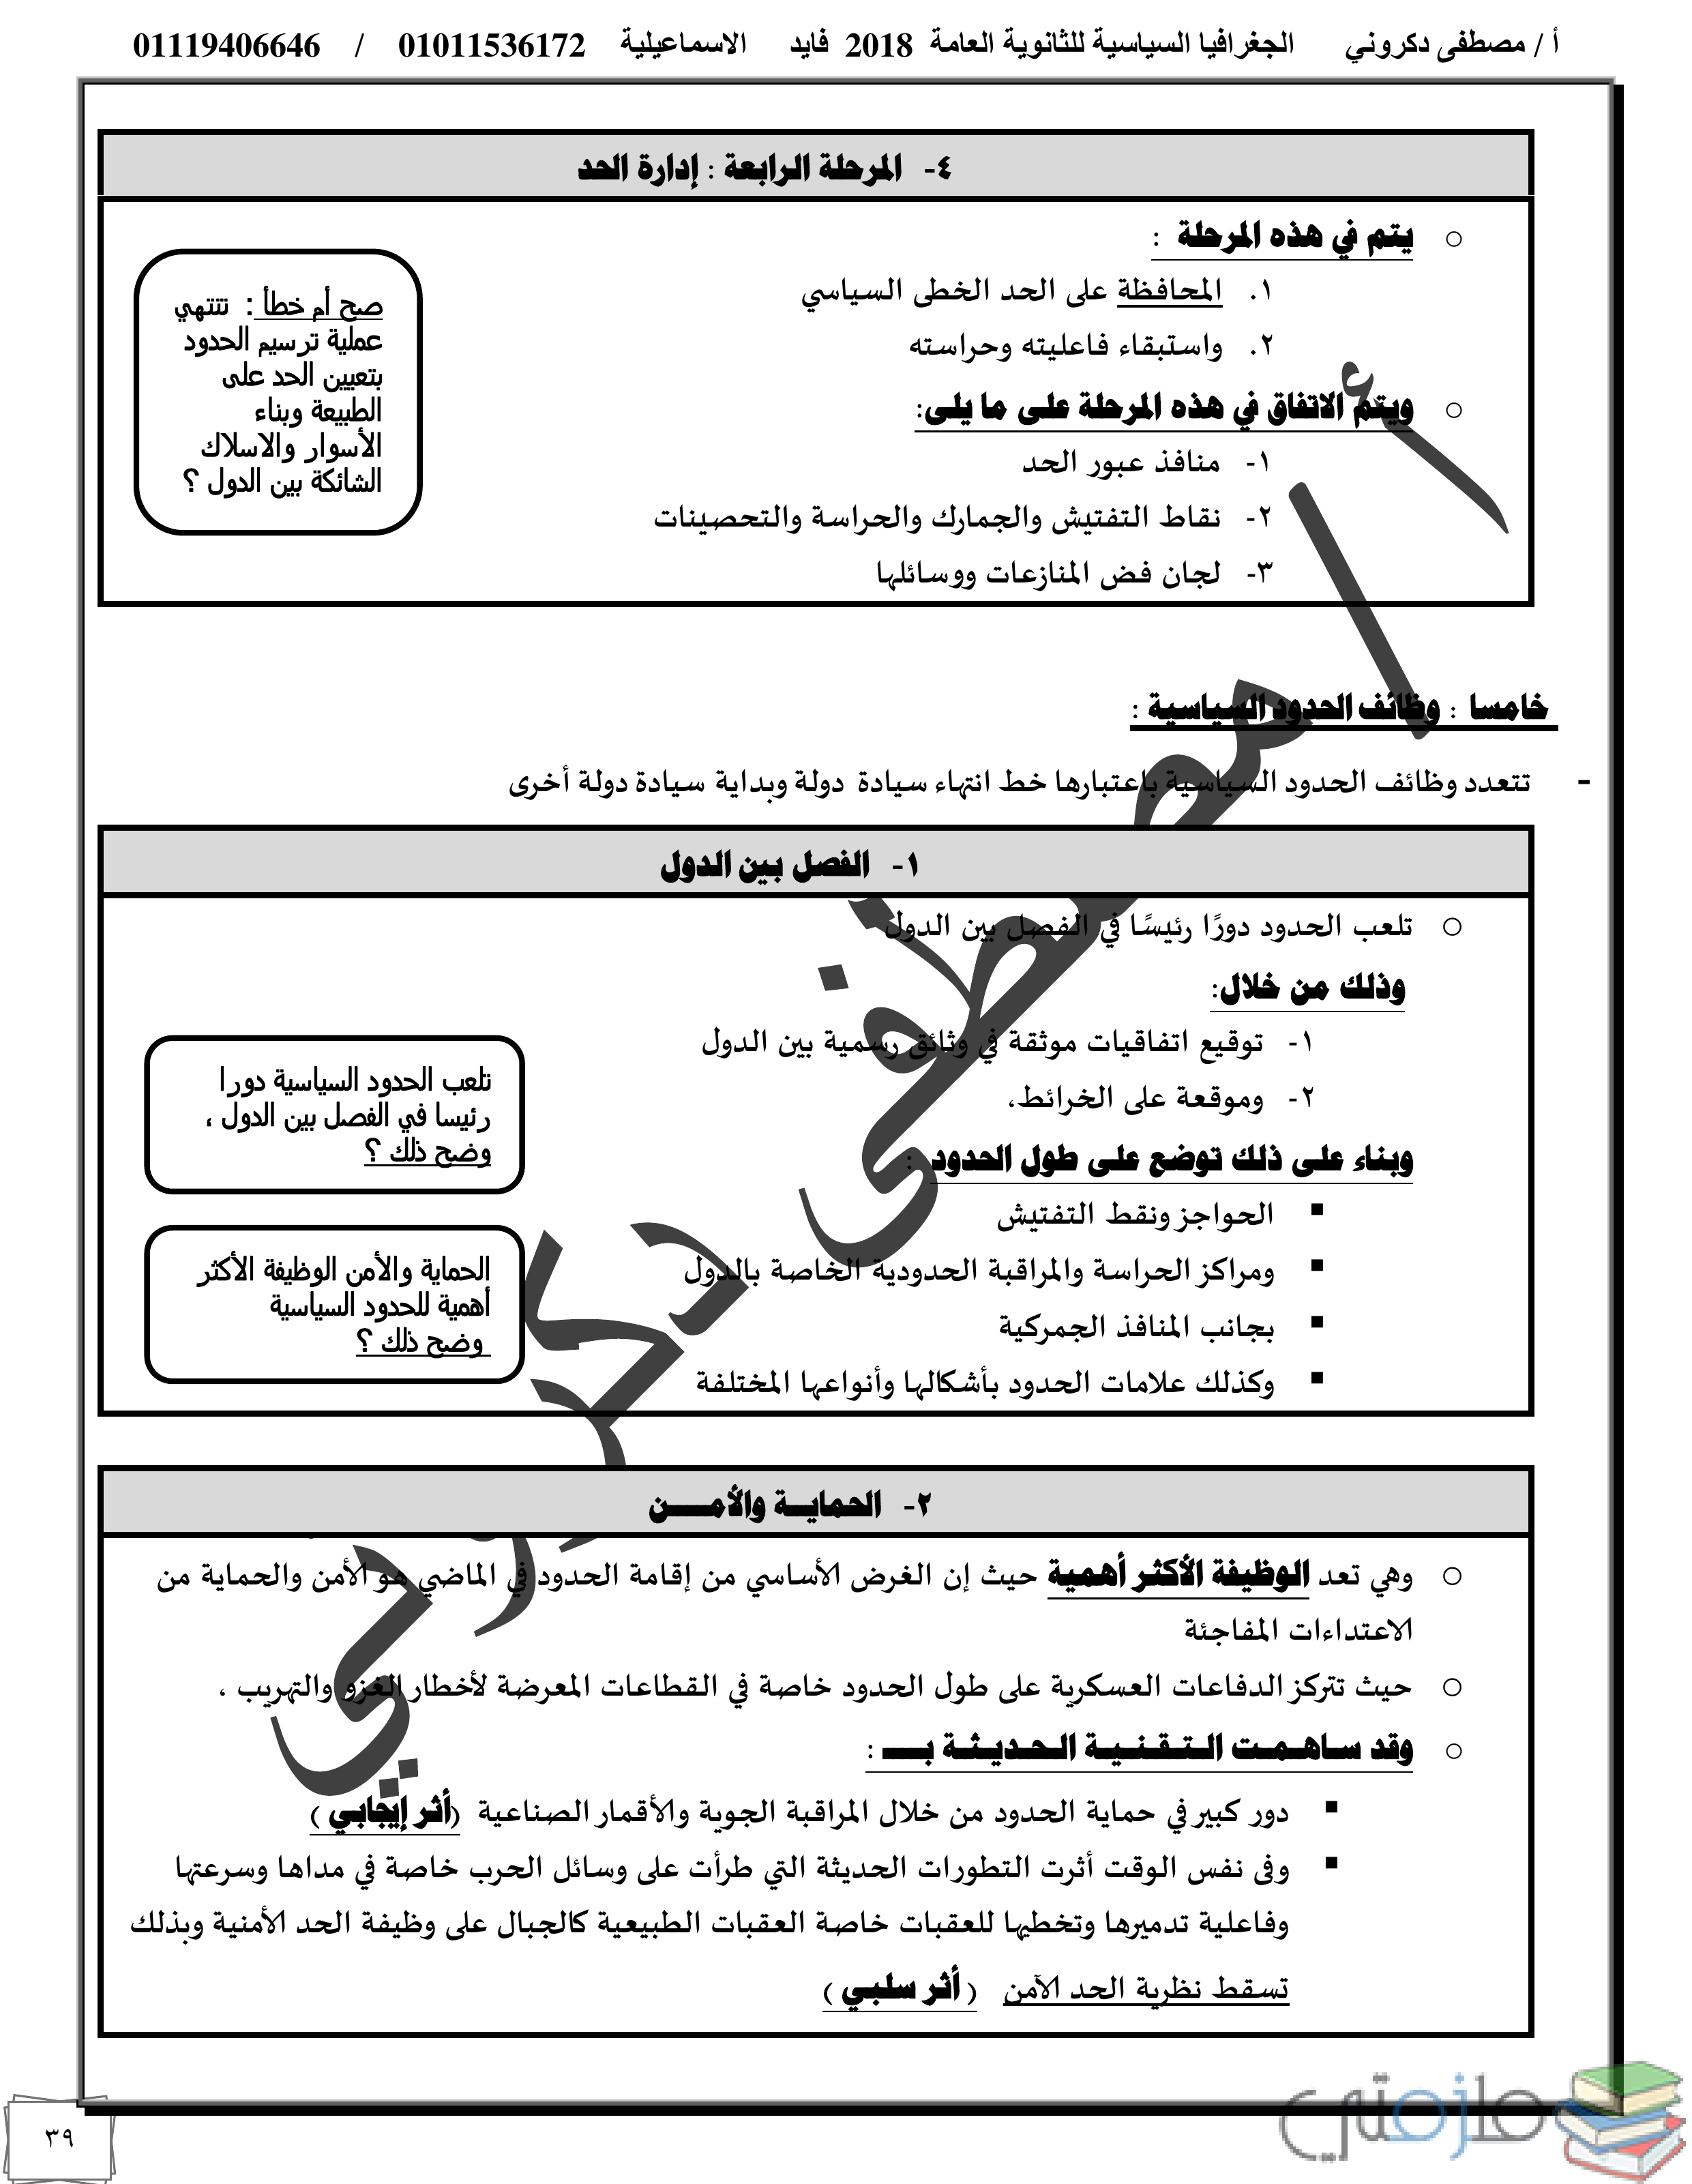 أ / مصطفى دكروني الجغرافيا السياسية للثانوية العامة 2018 فايد الاسماعيلية 01011536172 / 01119406646
٤- المرحلة الرابعة : إدارة الحد
يتم في هذه المرحلة :
١. المحافظة على الحد الخطى السياسي
٢. واستبقاء فاعليته وحراسته
ويتم الاتفاق في هذه المرحلة على ما يلى:
١- منافذ عبور الحد
٢- نقاط التفتيش والجمارك والحراسة والتحصينات
٣- لجان فض المنازعات ووسائلها
صح أم خطأ : تنتهي
عملية ترسيم الحدود
بتعيين الحد على
الطبيعة وبناء
الأسوار والاسلاك
الشائكة بين الدول ؟
خامسا : وظائف الحدود السياسية :
- تتعدد وظائف الحدود السياسية باعتبارها خط انتهاء سيادة دولة وبداية سيادة دولة أخرى
١- الفصل بين الدول
تلعب الحدود دورًا رئيسًا في الفصل بين الدول
وذلك من خلال:
١- توقيع اتفاقيات موثقة في وثائق رسمية بين الدول
٢- وموقعة على الخرائط،
وبناء على ذلك توضع على طول الحدود :
الحواجز ونقط التفتيش
ومراكز الحراسة والمراقبة الحدودية الخاصة بالدول
بجانب المنافذ الجمركية
وكذلك علامات الحدود بأشكالها وأنواعها المختلفة
تلعب الحدود السياسية دورا
رئيسا في الفصل بين الدول ،
وضح ذلك ؟
الحماية والأمن الوظيفة الأكثر
أهمية للحدود السياسية
وضح ذلك ؟
٢- الحمايـــة والأمـــــن
وهي تعد الوظيفة الأكثر أهمية حيث إن الغرض الأساسي من إقامة الحدود في الماضي هو الأمن والحماية من
الاعتداءات المفاجئة
حيث تتركز الدفاعات العسكرية على طول الحدود خاصة في القطاعات المعرضة لأخطار الغزو والتهريب ،
وقد ساهمت التقنية الحديثة بـــ :
دور كبير في حماية الحدود من خلال المراقبة الجوية والأقمار الصناعية (أثر إيجابي )
وفى نفس الوقت أثرت التطورات الحديثة التي طرأت على وسائل الحرب خاصة في مداها وسرعتها
وفاعلية تدميرها وتخطيها للعقبات خاصة العقبات الطبيعية كالجبال على وظيفة الحد الأمنية وبذلك
تسقط نظرية الحد الآمن ( أثر سلبي )
أ / مصطفى دكروني
ملزمتي
٣٩